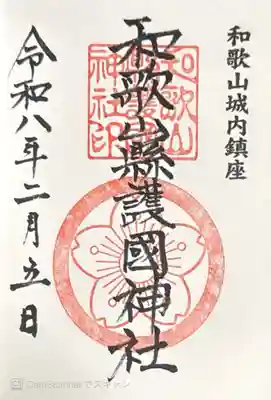 和歌山城内鎮座
和歌山縣護國神社
和歌山縣護國神社印
令和八年二月五日
CamScannerでスキャン